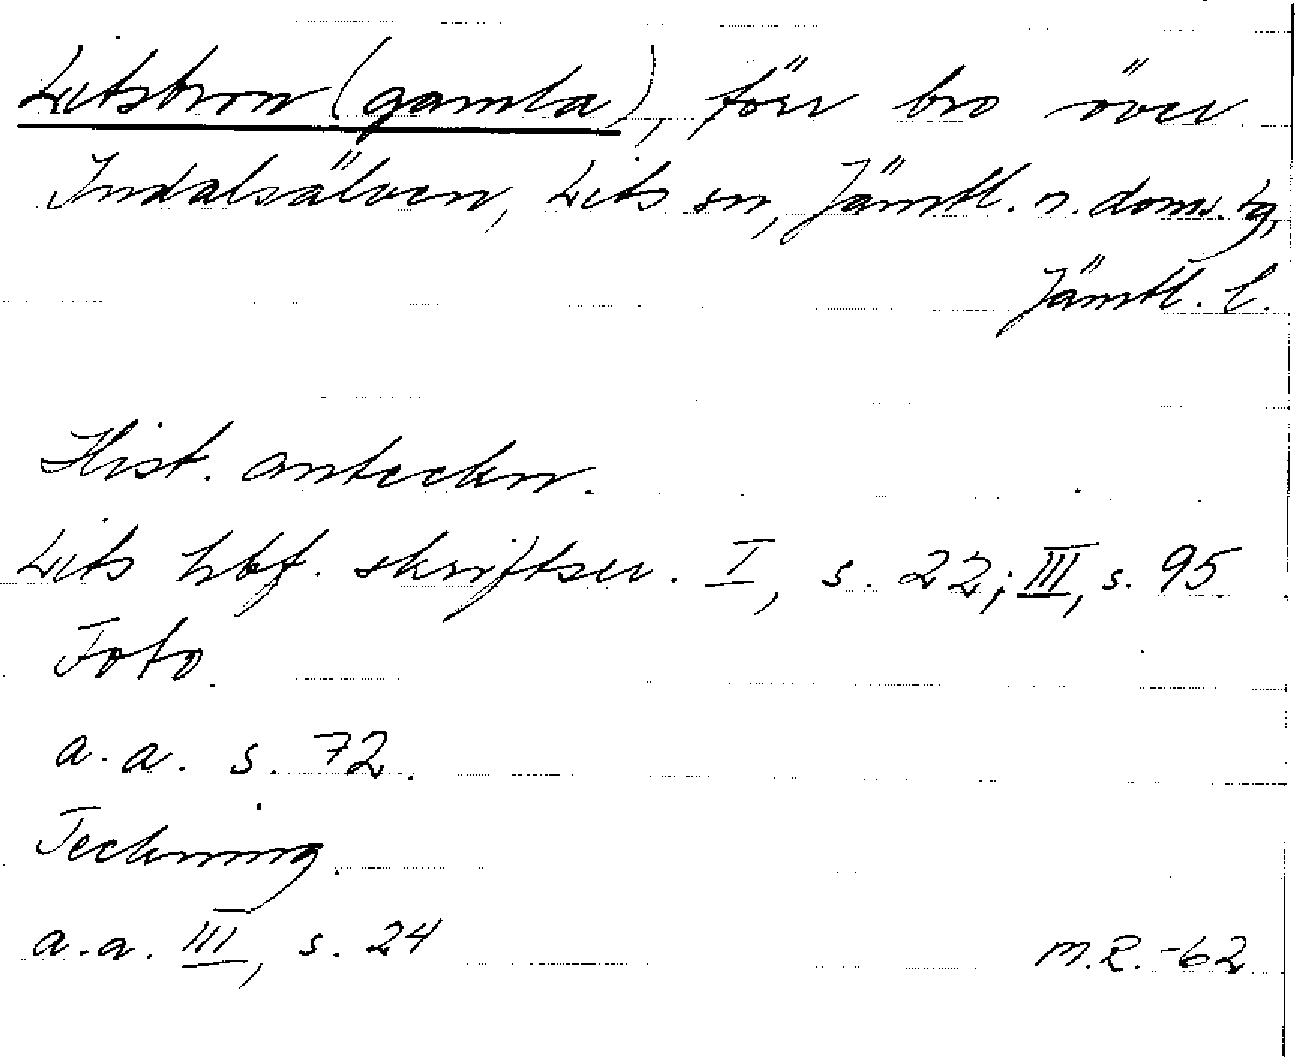 Litsbron (gamla), förr bro över
Indalsälven, Lits sn, Jämtl. n. doms. tg,
Jämtl. l.
Hist. anteckn.
Lits hbf. skriftser. I, s. 22; III, s. 95
Foto.
a.a. s. 72.
Teckning.
a.a. III, s. 24
M.R. -62